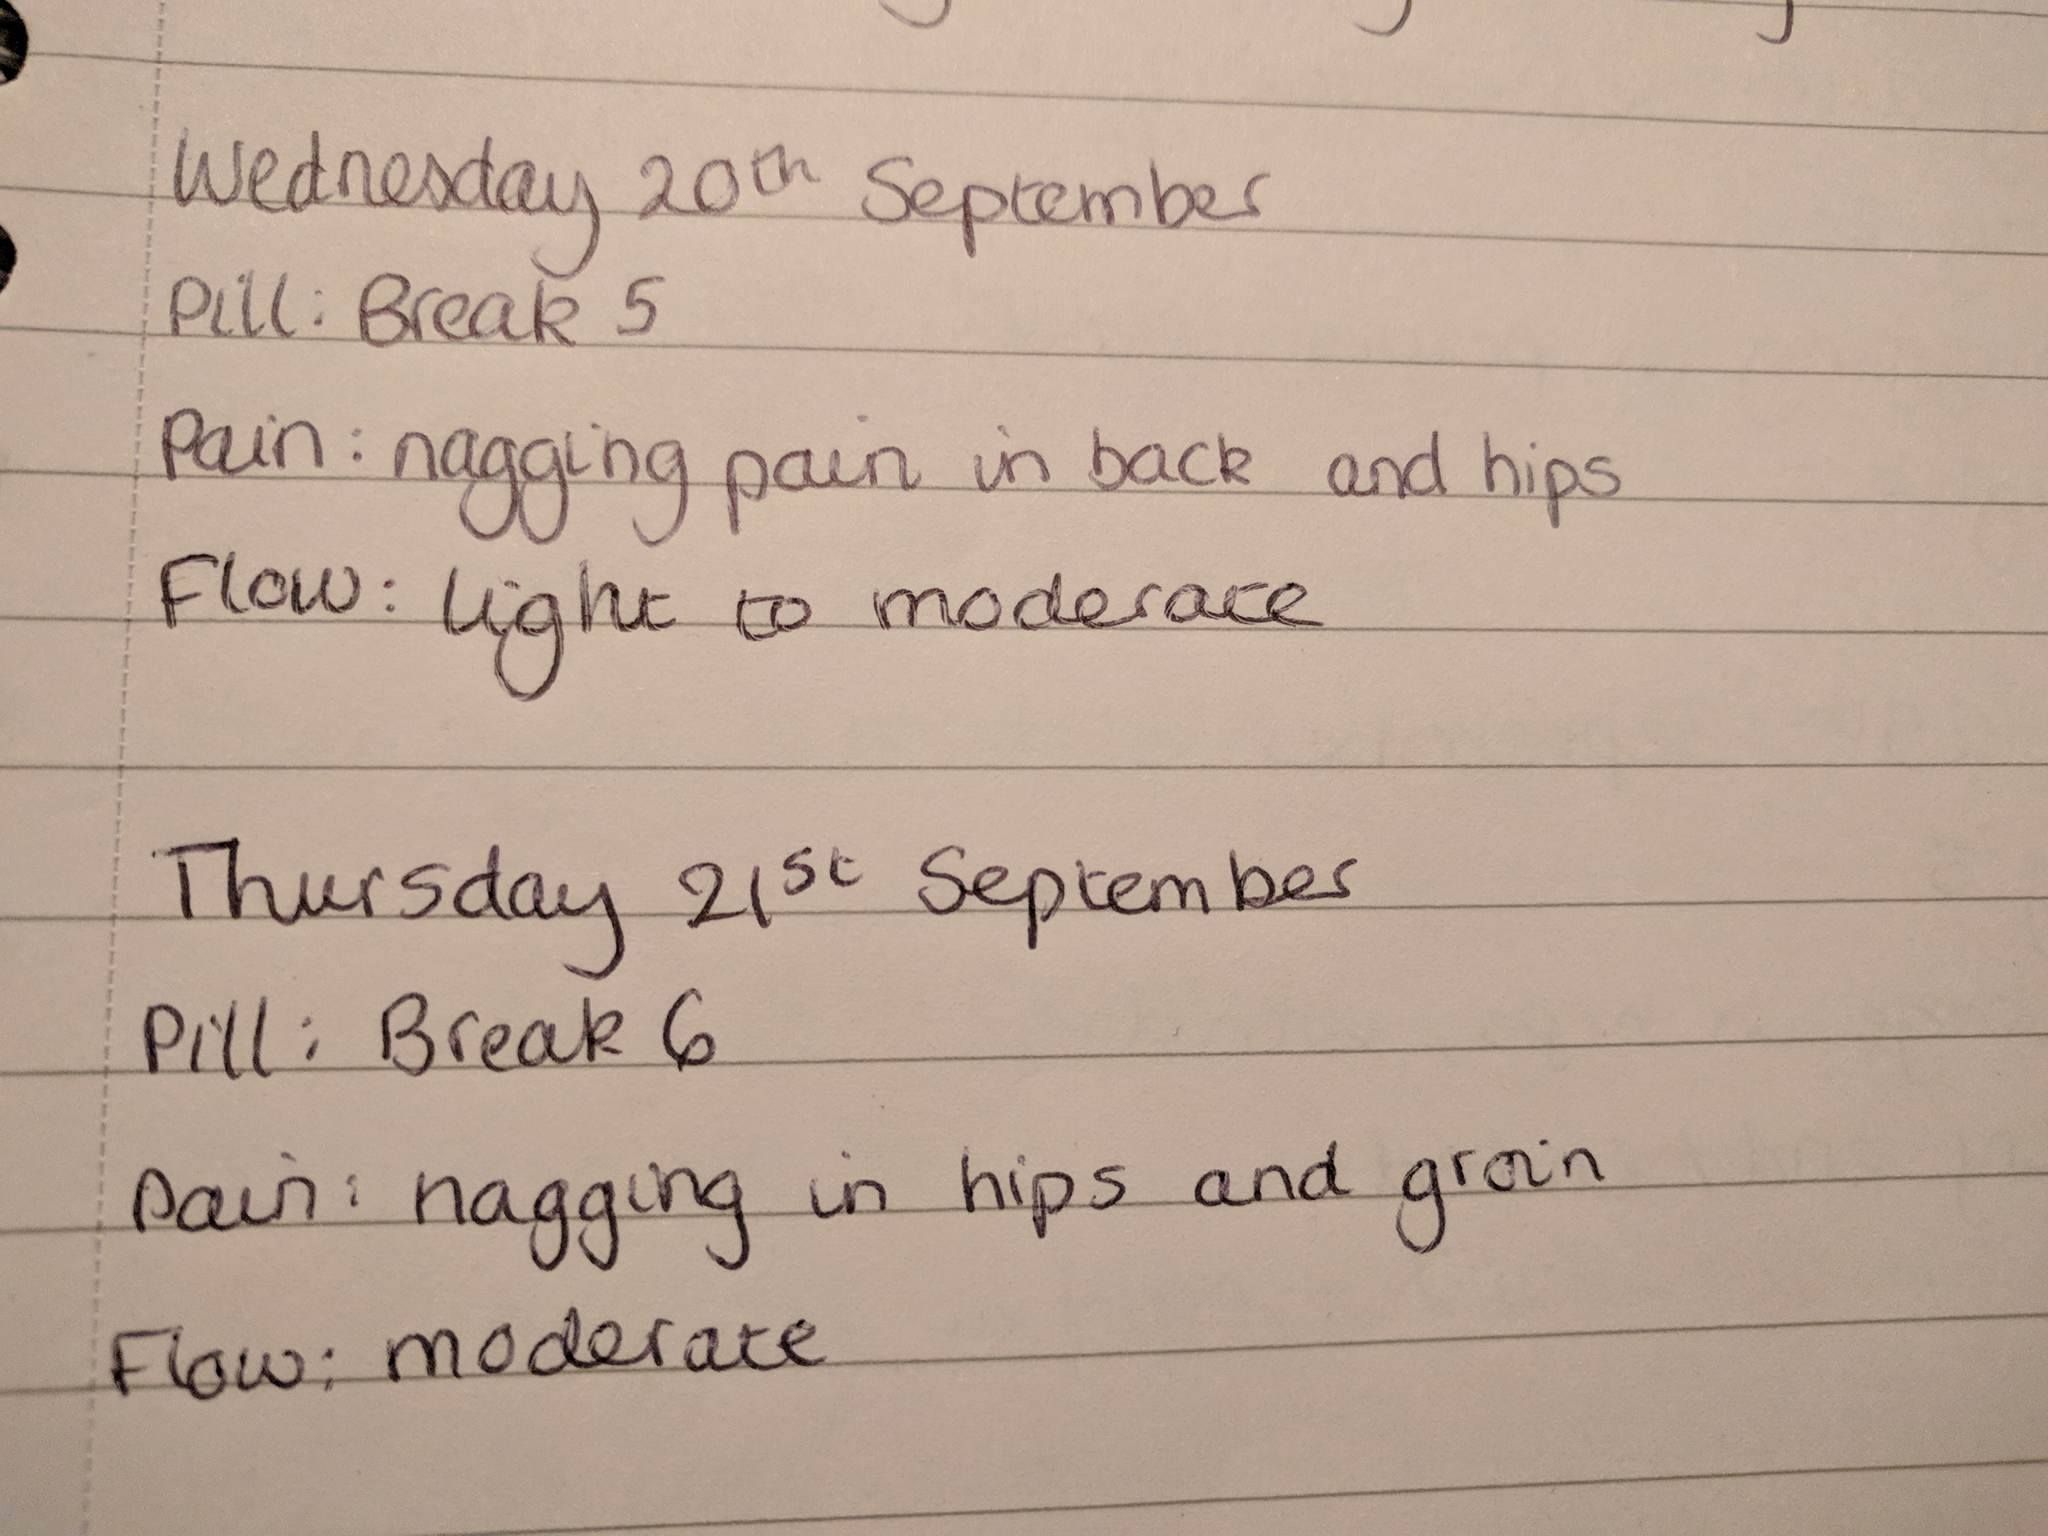 Wednesday 20th September
Pill: Break 5
Pain: nagging pain in back and hips
Flow: light to moderate
Thursday 21st September
Pill: Break 6
Pain: nagging in hips and groin
Flow: moderate